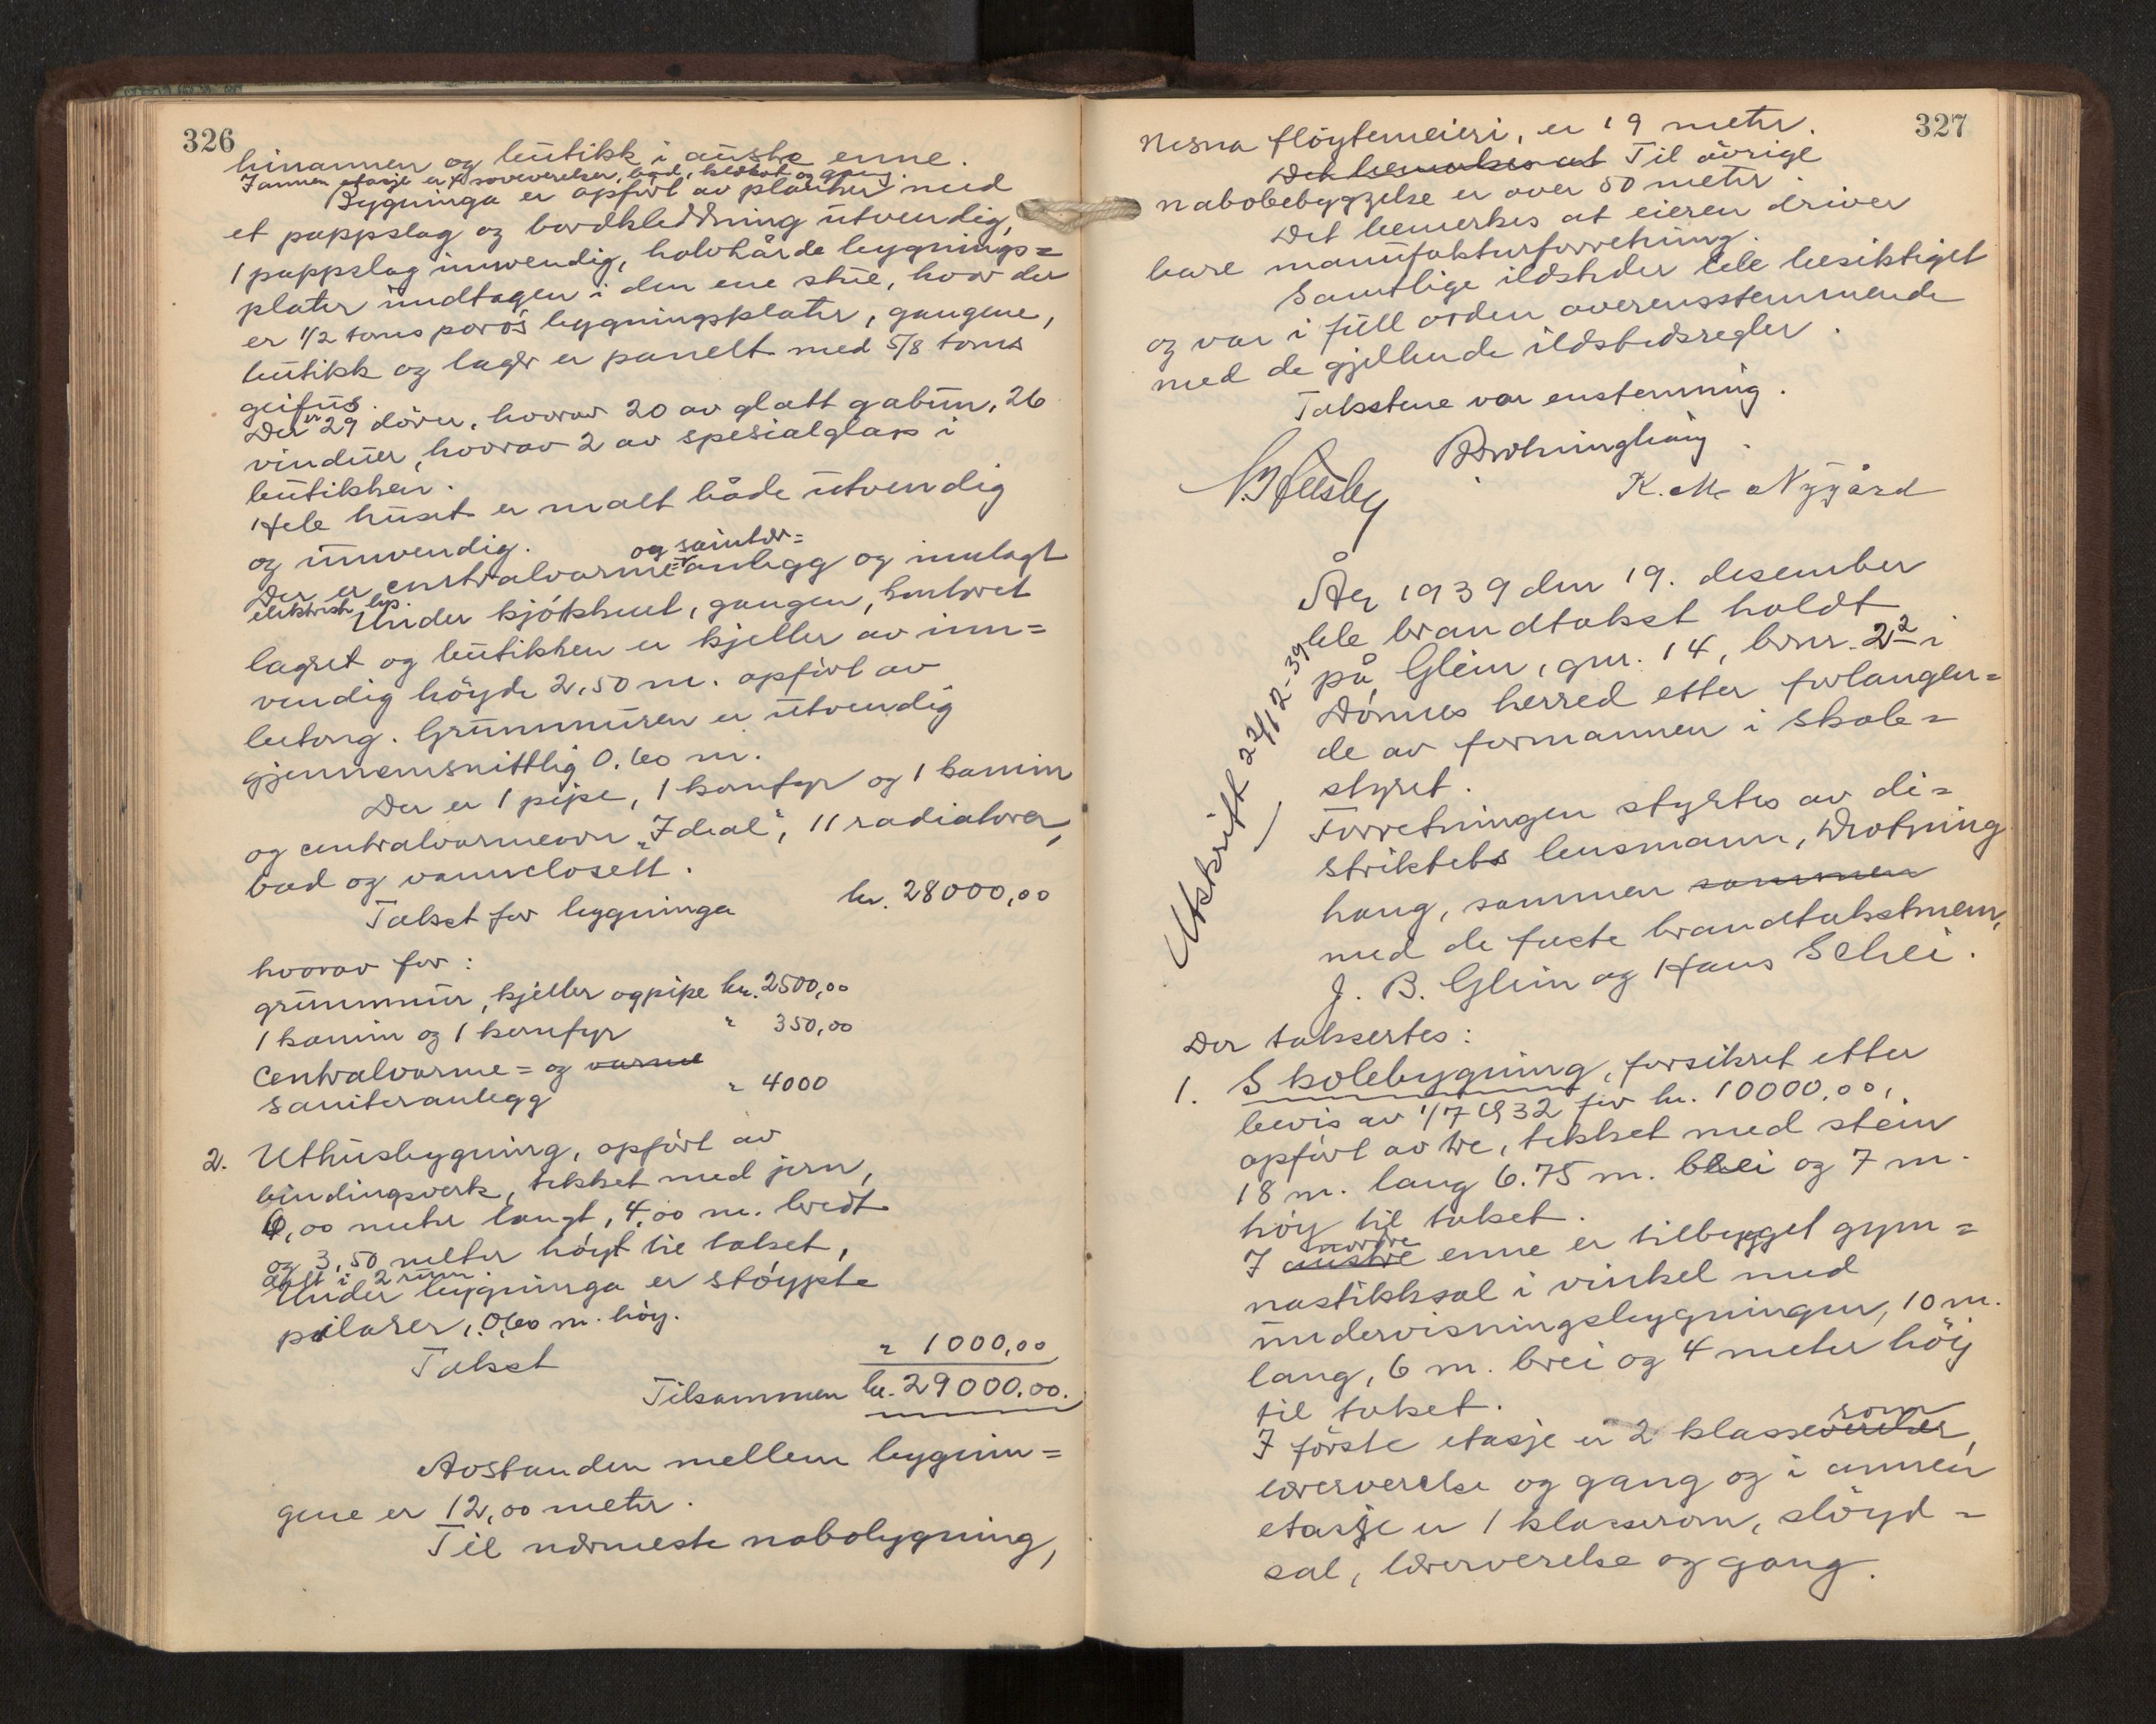 326
hinannen og butikk i austre enne.
I annen etasje er 4 soveverelser, bad, kleskot og gang.
Bygninga er opført av planker med
et pappslag og bordkleddning utvendig,
1 pappslag innvendig, halvhårde bygnings=
plater undtagen i den ene stue, hvor der
er 1/2 toms porøs bygningsplater, gangene,
butikk og lager er panelt med 5/8 toms
Der er 29 dører, hvorav 20 av glatt gabun, 26
vinduer, hvorav 2 av spesialglass i
butikken.
Hele huset er malt både utvendig
og innvendig.
og saniter=
Der er centralvarme=anlegg og innlagt
elektrisk lys.
Under kjøkkenet, gangen, kontoret
lagret og butikken er kjeller av inn=
vendig høyde 2,50 m. opført av
betong. Grunnmuren er utvendig
gjennemsnittlig 0.60 m.
Der er 1 pipe, 1 komfyr og 1 kamin
og centralvarmeovn „Ideal", 11 radiatorer,
bad og vannclosett.
Takst for bygninga kr. 28000,00
hvorav for:
grunnmur, kjeller og pipe kr. 2500,00
1 kamin og 1 komfyr " 350,00
Centralvarme= og varme
saniteranlegg " 4000
2. Uthusbygning, opført av
bindingsverk, tekket med jern,
6,00 meter langt, 4,00 m. bredt
og 3,50 meter høyt til taket,
delt i 2 rum
Under bygninga er støypte
pilarer, 0,60 m. høy.
Takst " 1000,00
Tilsammen kr. 29000.00.
Avstanden mellem bygnin=
gene er 12,00 meter.
Til nærmeste nabobygning,
327
Nesna fløytemeieri, er 19 meter.
Det bemerkes at Til øvrige
nabobebyggelse er over 50 meter.
Det bemerkes at eieren driver
bare manufakturforretning.
Samtlige ildsteder ble besiktiget
og var i full orden overensstemmende
med de gjellende ildstedsregler.
Takstene var enstemmig.
Drotninghaug.
K. M. Nygård
Utskrift 22/12-39
År 1939 den 19. desember
ble brandtakst holdt
på Glein, gnr. 14, brnr. 2 2 i
Dønnes herred etter forlangen=
de av formannen i skole=
styret.
Forretningen styrtes av di=
striktets lensmann, Drotning
haug, sammen sammen
med de faste brandtakstmenn,
J. B. Glein og Hans Schei.
Der taksertes:
1. Skolebygning, forsikret etter
bevis av 1/7 1932 for kr. 10000.00,
opført av tre, tekket med stein
18 m. lang 6.75 m. brei og 7 m.
høy til taket.
nordre
I austre enne er tilbygget gym=
nastikksal i vinkel med
undervisningsbygningen, 10 m.
lang, 6 m. brei og 4 meter høy
til taket.
rom
I første etasje er 2 klasseverelser,
lererverelse og gang og i annen
etasje er 1 klasserom, sløyd=
sal, lærerverelse og gang.